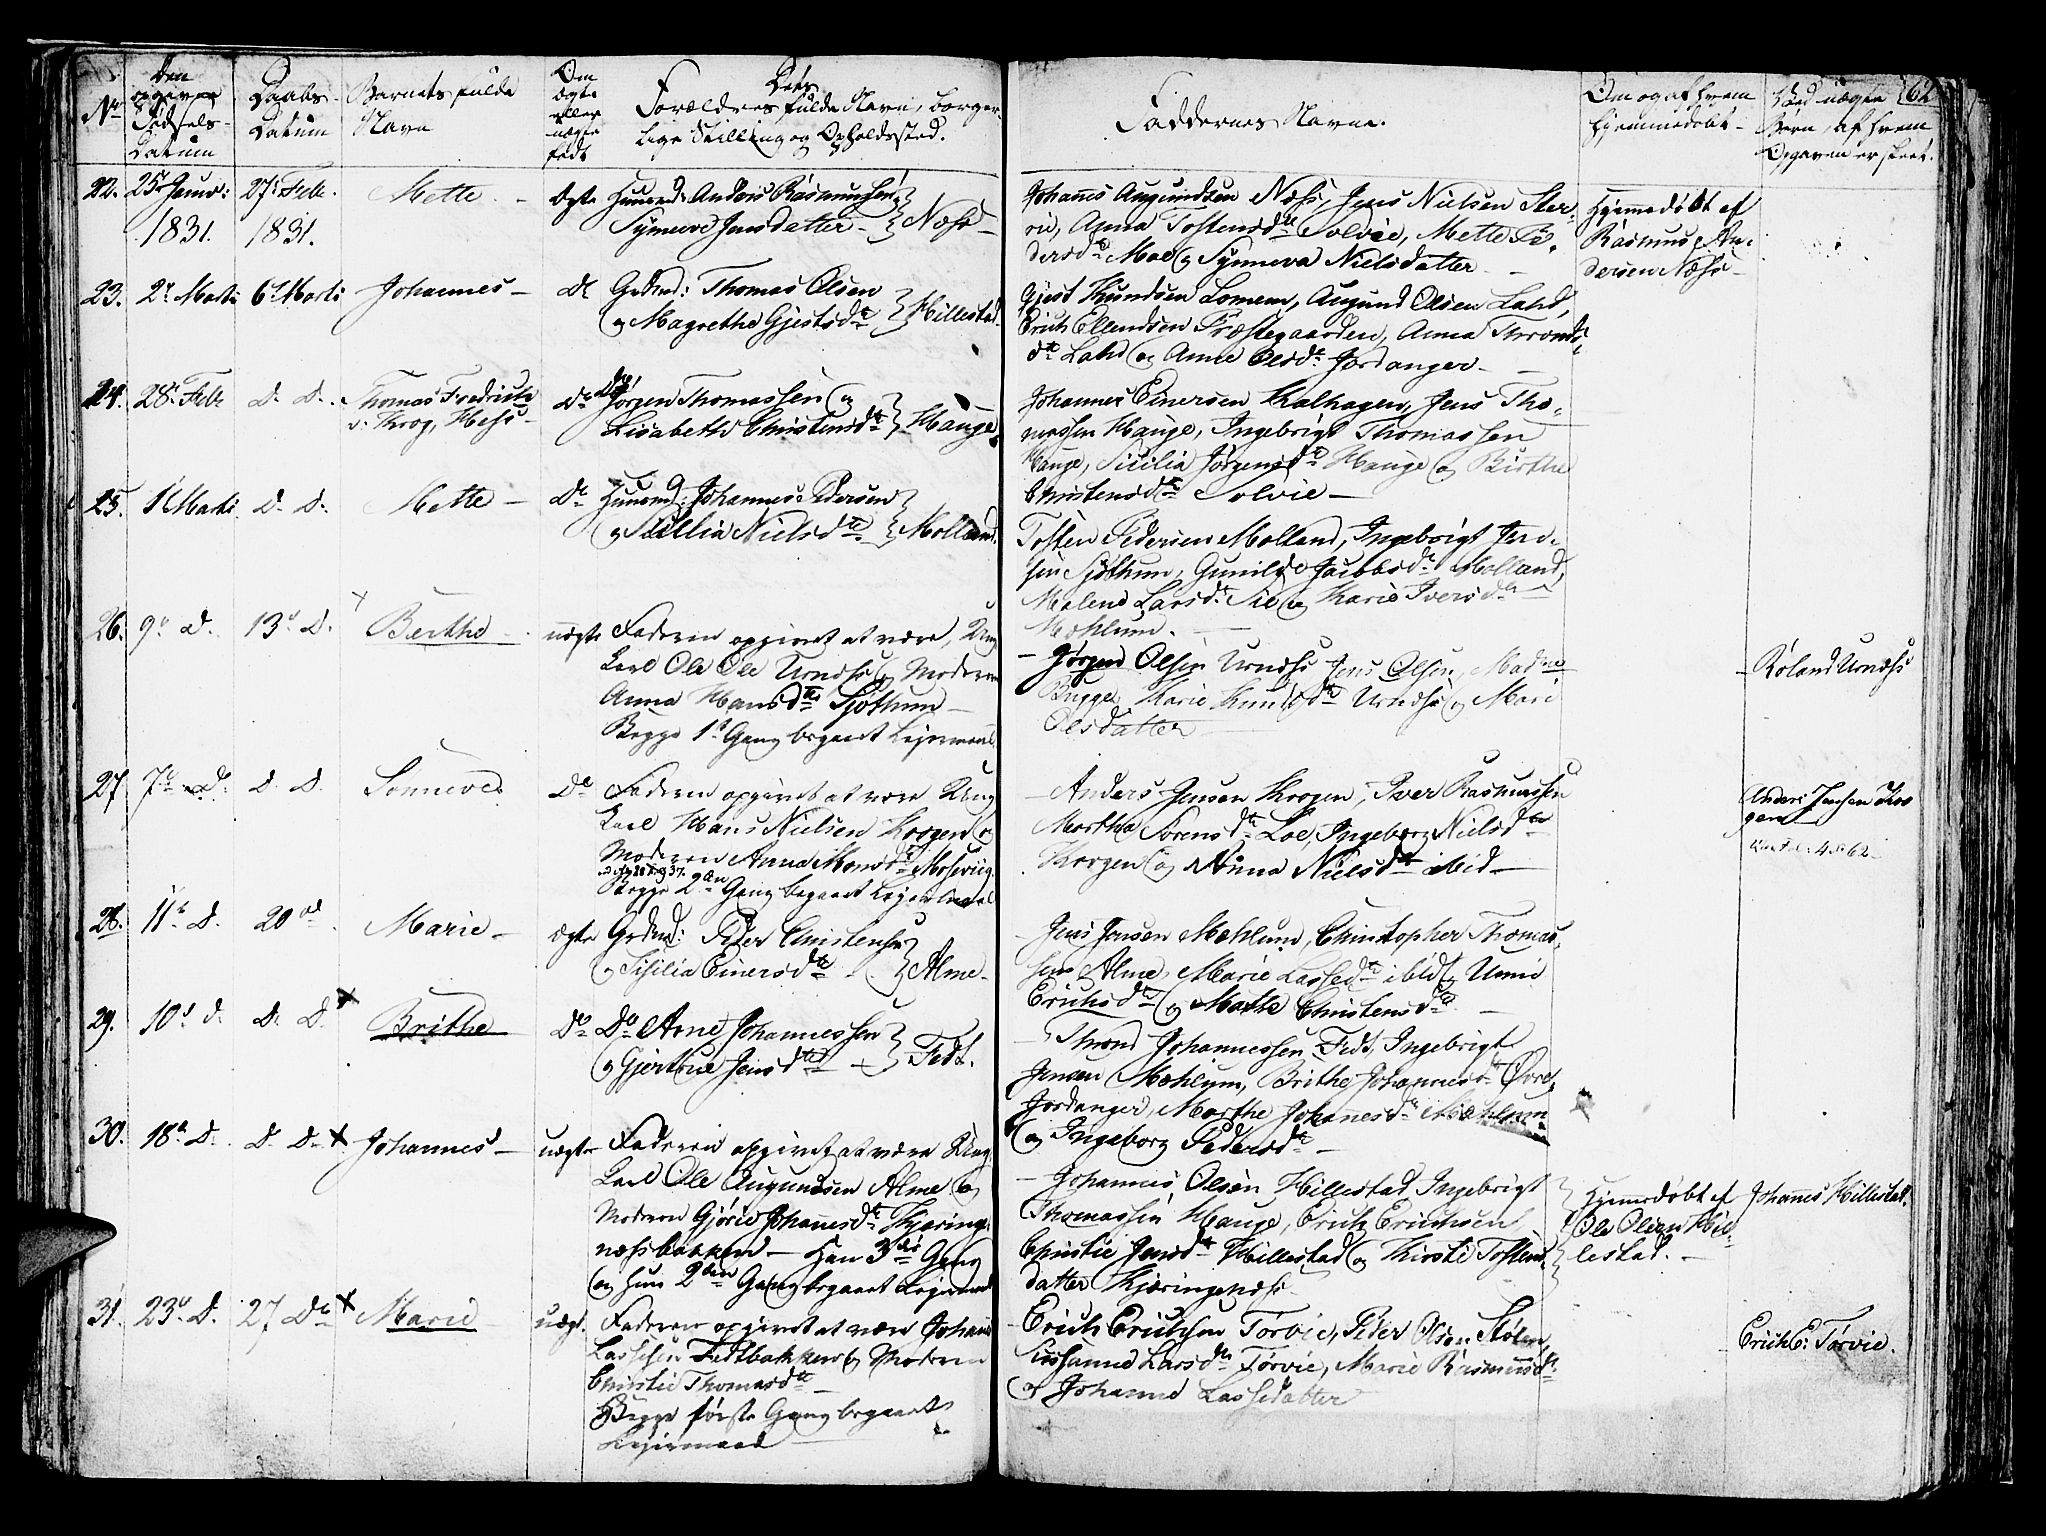 No
Den opgivne Fødsels-Datum
Daabs Datum
Barnets fulde Navn
Om ægte eller uægte født
Dets Forældres fulde Navn, borgerlige Stilling og Opholdssted.
Faddernes Navne.
Om og af hvem hjemmedøbt
Ved uægte Børn, af hvem Opgaven er skeet.
62
22. 25 Janu: 1831. 27: Feb. 1831. Mette ægte Huusmd: Anders Rasmussen
Synneve Jensdatter } Næss
Johanes Augundsen Næss, Jens Nielsen
Anna Tostensdtr Solvie, Mette
Moe og Synneva Nielsdatter
Hjemmedøbt af
Rasmus An-
dersen Næss
23. 2: Marti 6 Marti Johannes Do Grdmd: Thomas Olsen
og Magrethe Gjestsdtr } Hillestad
Gjest Knudsen Lomem, Augund Olsen Lahd,
Erich Ellendsen Præstegaarden, Anna Thronds
dtr Lahd og Anne Olsdtr Jordanger
24. 28: Feb D. D. Thomas Fredrich
v: Krog, Hess
Do Do Jørgen Thomassen og
Lisabeth Christensdtr } Hauge
Johannes Einersen Kalhagen, Jens Tho-
massen Hauge, Ingebrigt Thomassen
Hauge, Sicilia Jørgensdtr Hauge og Birthe
Christensdtr Solvie
25. 1 Marti D. D. Mette Do Huusmd: Johannes Pedersen
og Sicilia Nielsdtr } Molland.
Tosten Pedersen Molland, Ingebrigt Iver-
sen Sjøthun, Gunild Jacobsdtr Molland,
Malene Larsdtr og Marie Iversdtr
Mæhlum.
26. 9 D. 13 D. Berthe uægte Faderen opgivet at være, Ung
Karl Ole Urnæs og Moderen
Anna Hansdtr Sjøthun
Begge 1 Gang begaaet Lejermaal
Jørgen Olsen Urnæss Jens Olsen, Madme
Bugge, Marie Knudsdtr Urnæs og Mari
Olsdatter
Roland Urnæss
27 7 Do D. D. Sønneve Do Faderen opgivet at være Ung
Karl Hans Nielsen Krogen og
Moderen Anna Monsdtr
Begge 2den Gang begaaet Lejermaal
Anders Jensen Krogen, Iver Rasmussen
Martha Sorensdtr Loe, Ingeborg Nielsdtr
Kroegen og Anna Nielsdtr ibid
Anders Jensen Kro
gen
28. 11 D. 20 Marie ægte Grdmd: Peder Christensen
og Sisilia Einersdtr } Alme
Jens Jensen Mæhlum, Christopher Thomas-
sen Alme, Marie Lassedtr ibid og Unni
Erichsdtr og Mette Christensdtr
29. 10 D. D. D. Brithe Do Do Arne Johannessen
og Gjertrue Jensdtr } Fedt.
Thrond Johannessen Fedt, Ingebrigt
Jensen Mæhlum, Brithe Johannesdtr Øvre
Jordanger, Marthe Johanesdtr Mæhlum
og Ingeborg Pedersdtr
30. 18 D. D. Do Johannes uægte Faderen opgivet at være Ung
Karl Ole Augundsen Alme og
Moderen Gjørie Johanesdtr Kjæringe
næssbakken Han 3die Gang
og hun 2den Gang begaaet Lejermaal
Johannes Olsen Hillestad, Ingebrigt
Thomassen Hauge, Erich Erichsen
Christie Jensdtr Hillestad og Kirsti Tostens
datter Kjæringnæss
Hjemmedøbt af
Ole Olsen Hil-
lestad.
Johanes Hillestad.
31. 23 D. 27 Do Marie uægt. Faderen opgivet at være Johans
Lassesen Fedtbakken og Moderen
Christie Thomasdtr
Begge første Gang begaaet
Lejermaal
Erich Erichsen Tørvie, Peder Olsen Stølen,
Sussanne Larsdtr Tørvie, Marie Rasmusdtr
og Johanne Lassedatter
Erich E: Tørvie.